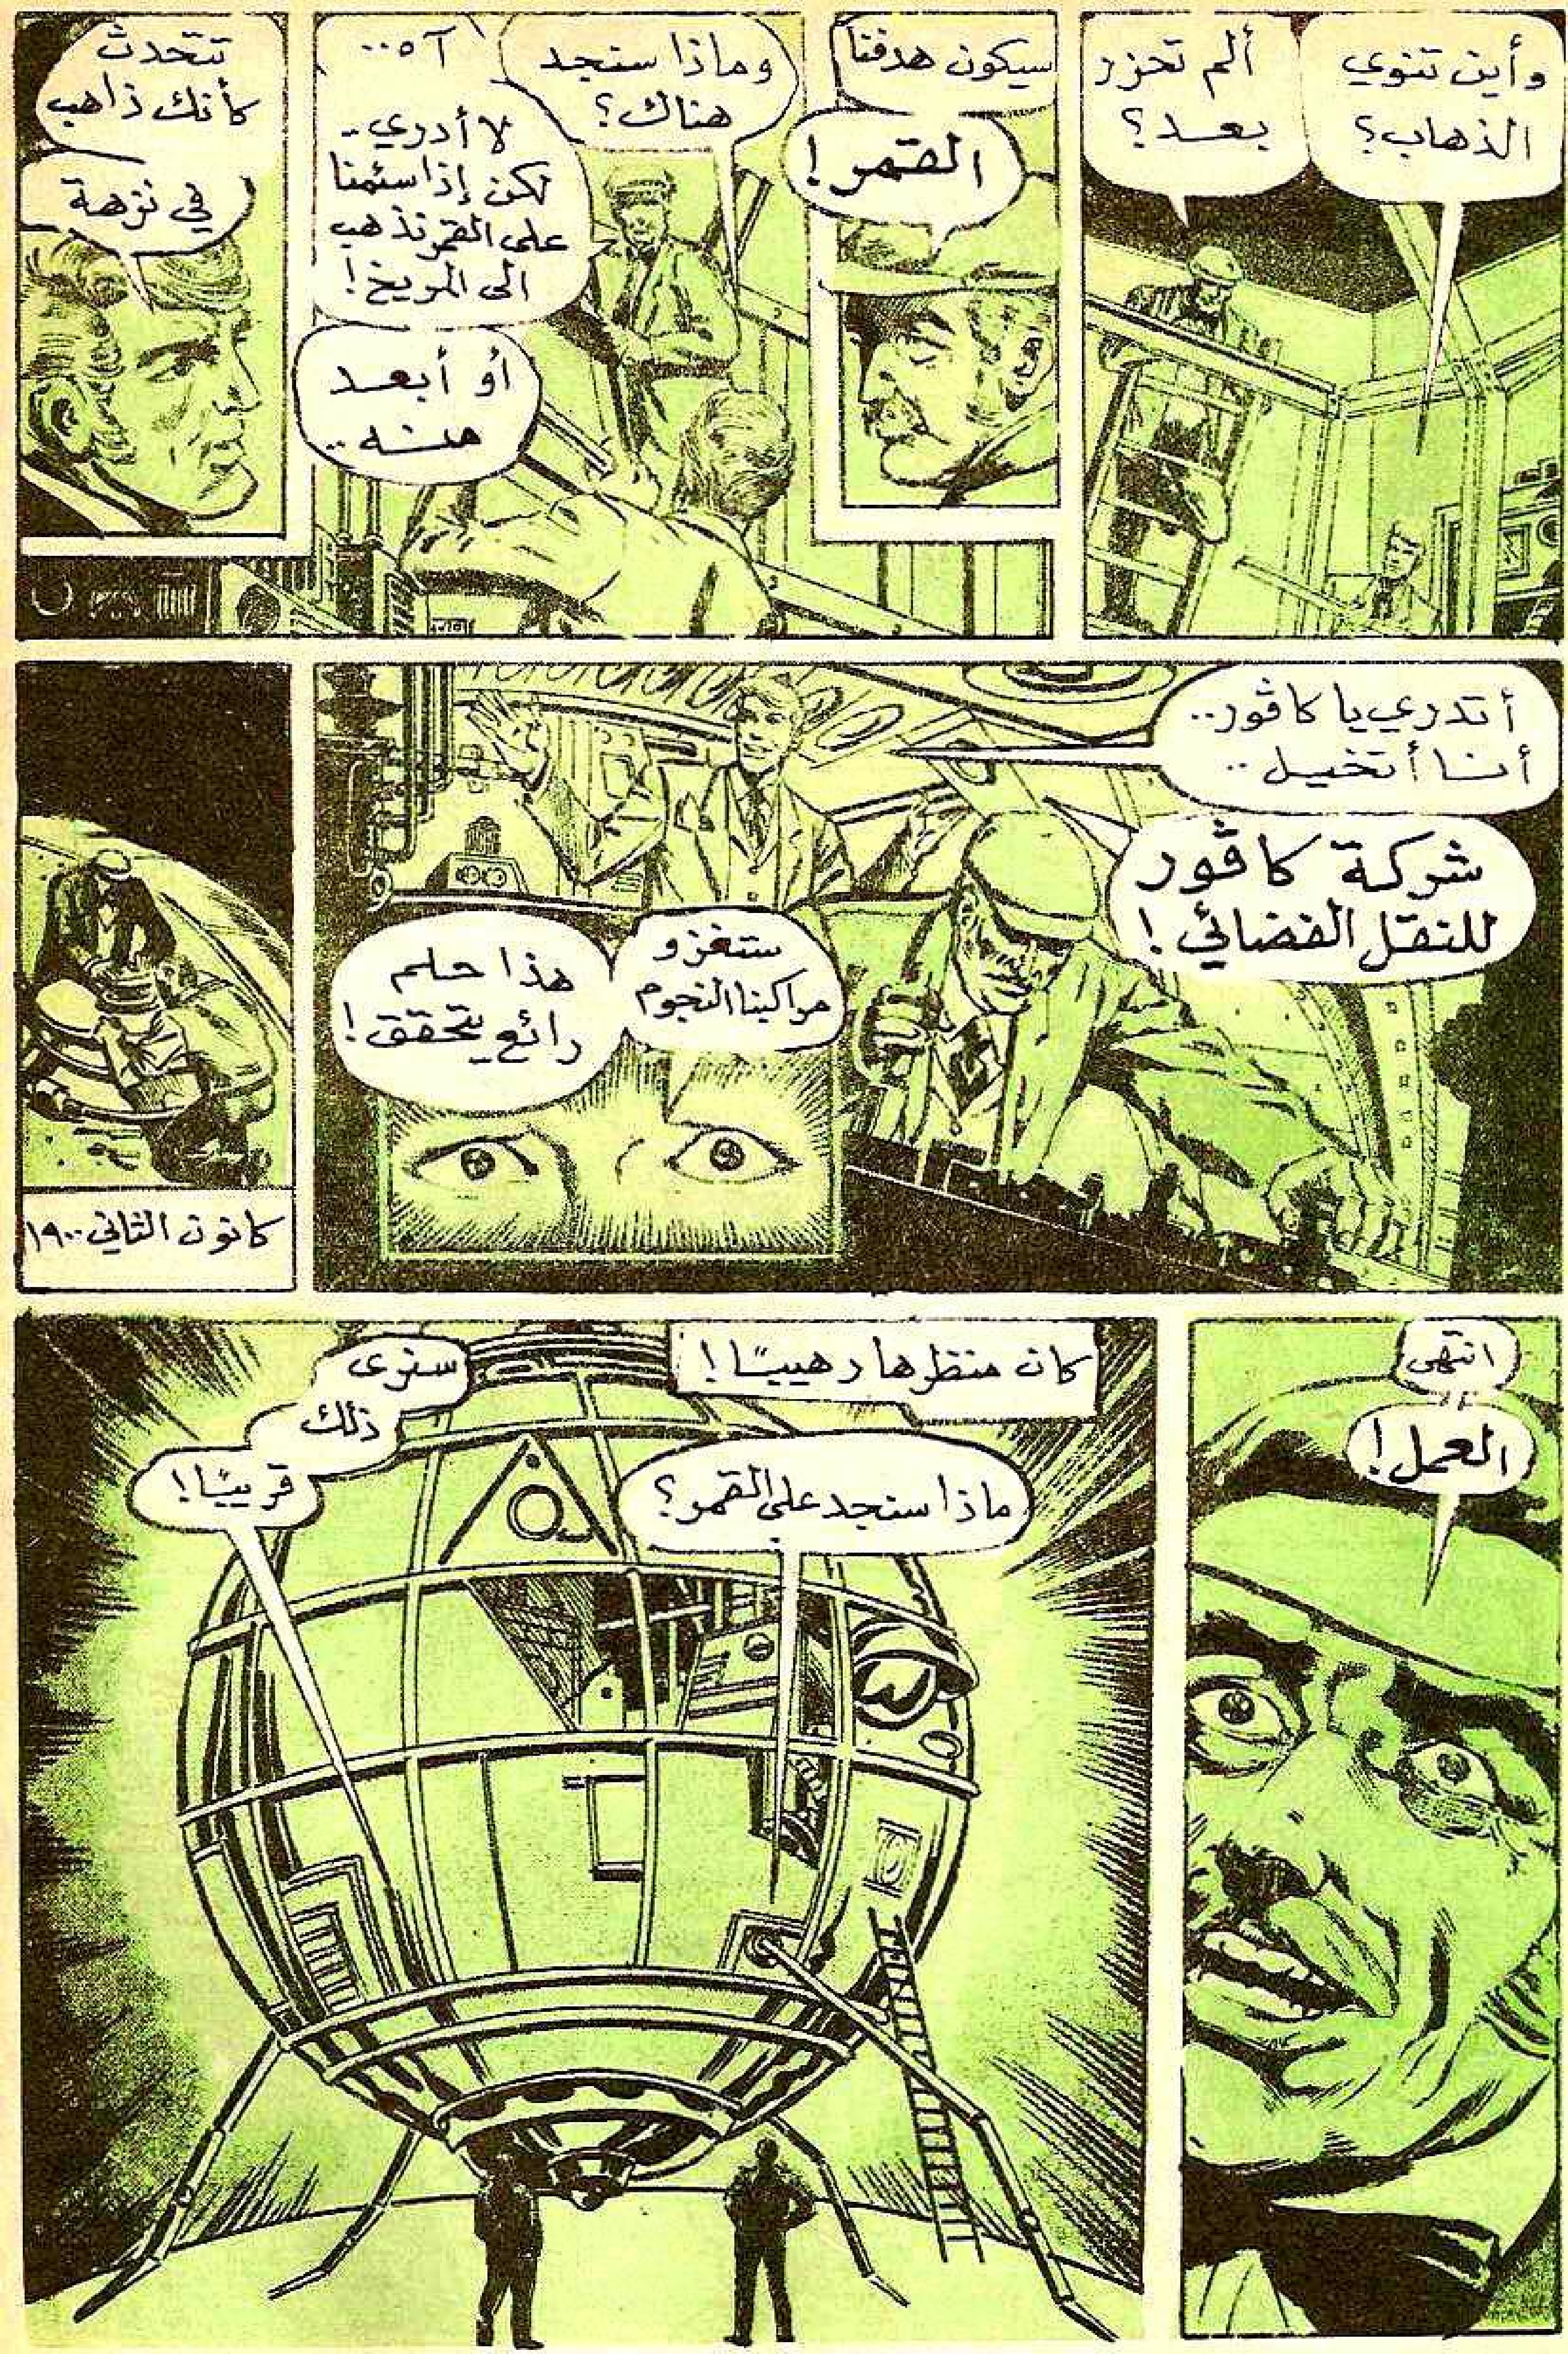 وأين تنوي
الذهاب؟
ألم تحزر
بعد؟
سيكون هدفنا
القمر!
وماذا سنجد
هناك؟
آه..
لا أدري -
لكن إذا سئمنا
على القمر نذهب
الى المريخ!
أو أبعد
منه..
تتحدث
كأنك ذاهب
في نزهة
أتدري يا كاڤور..
أنا أتخيل..
شركة كاڤور
للنقل الفضائي!
ستغزو
مراكبنا النجوم
هذا حلم
رائع يتحقق!
كانون الثاني ١٩٠٠
انتهى
العمل!
كان منظرها رهيبًا!
ماذا سنجد على القمر؟
سنرى
ذلك
قريبًا!